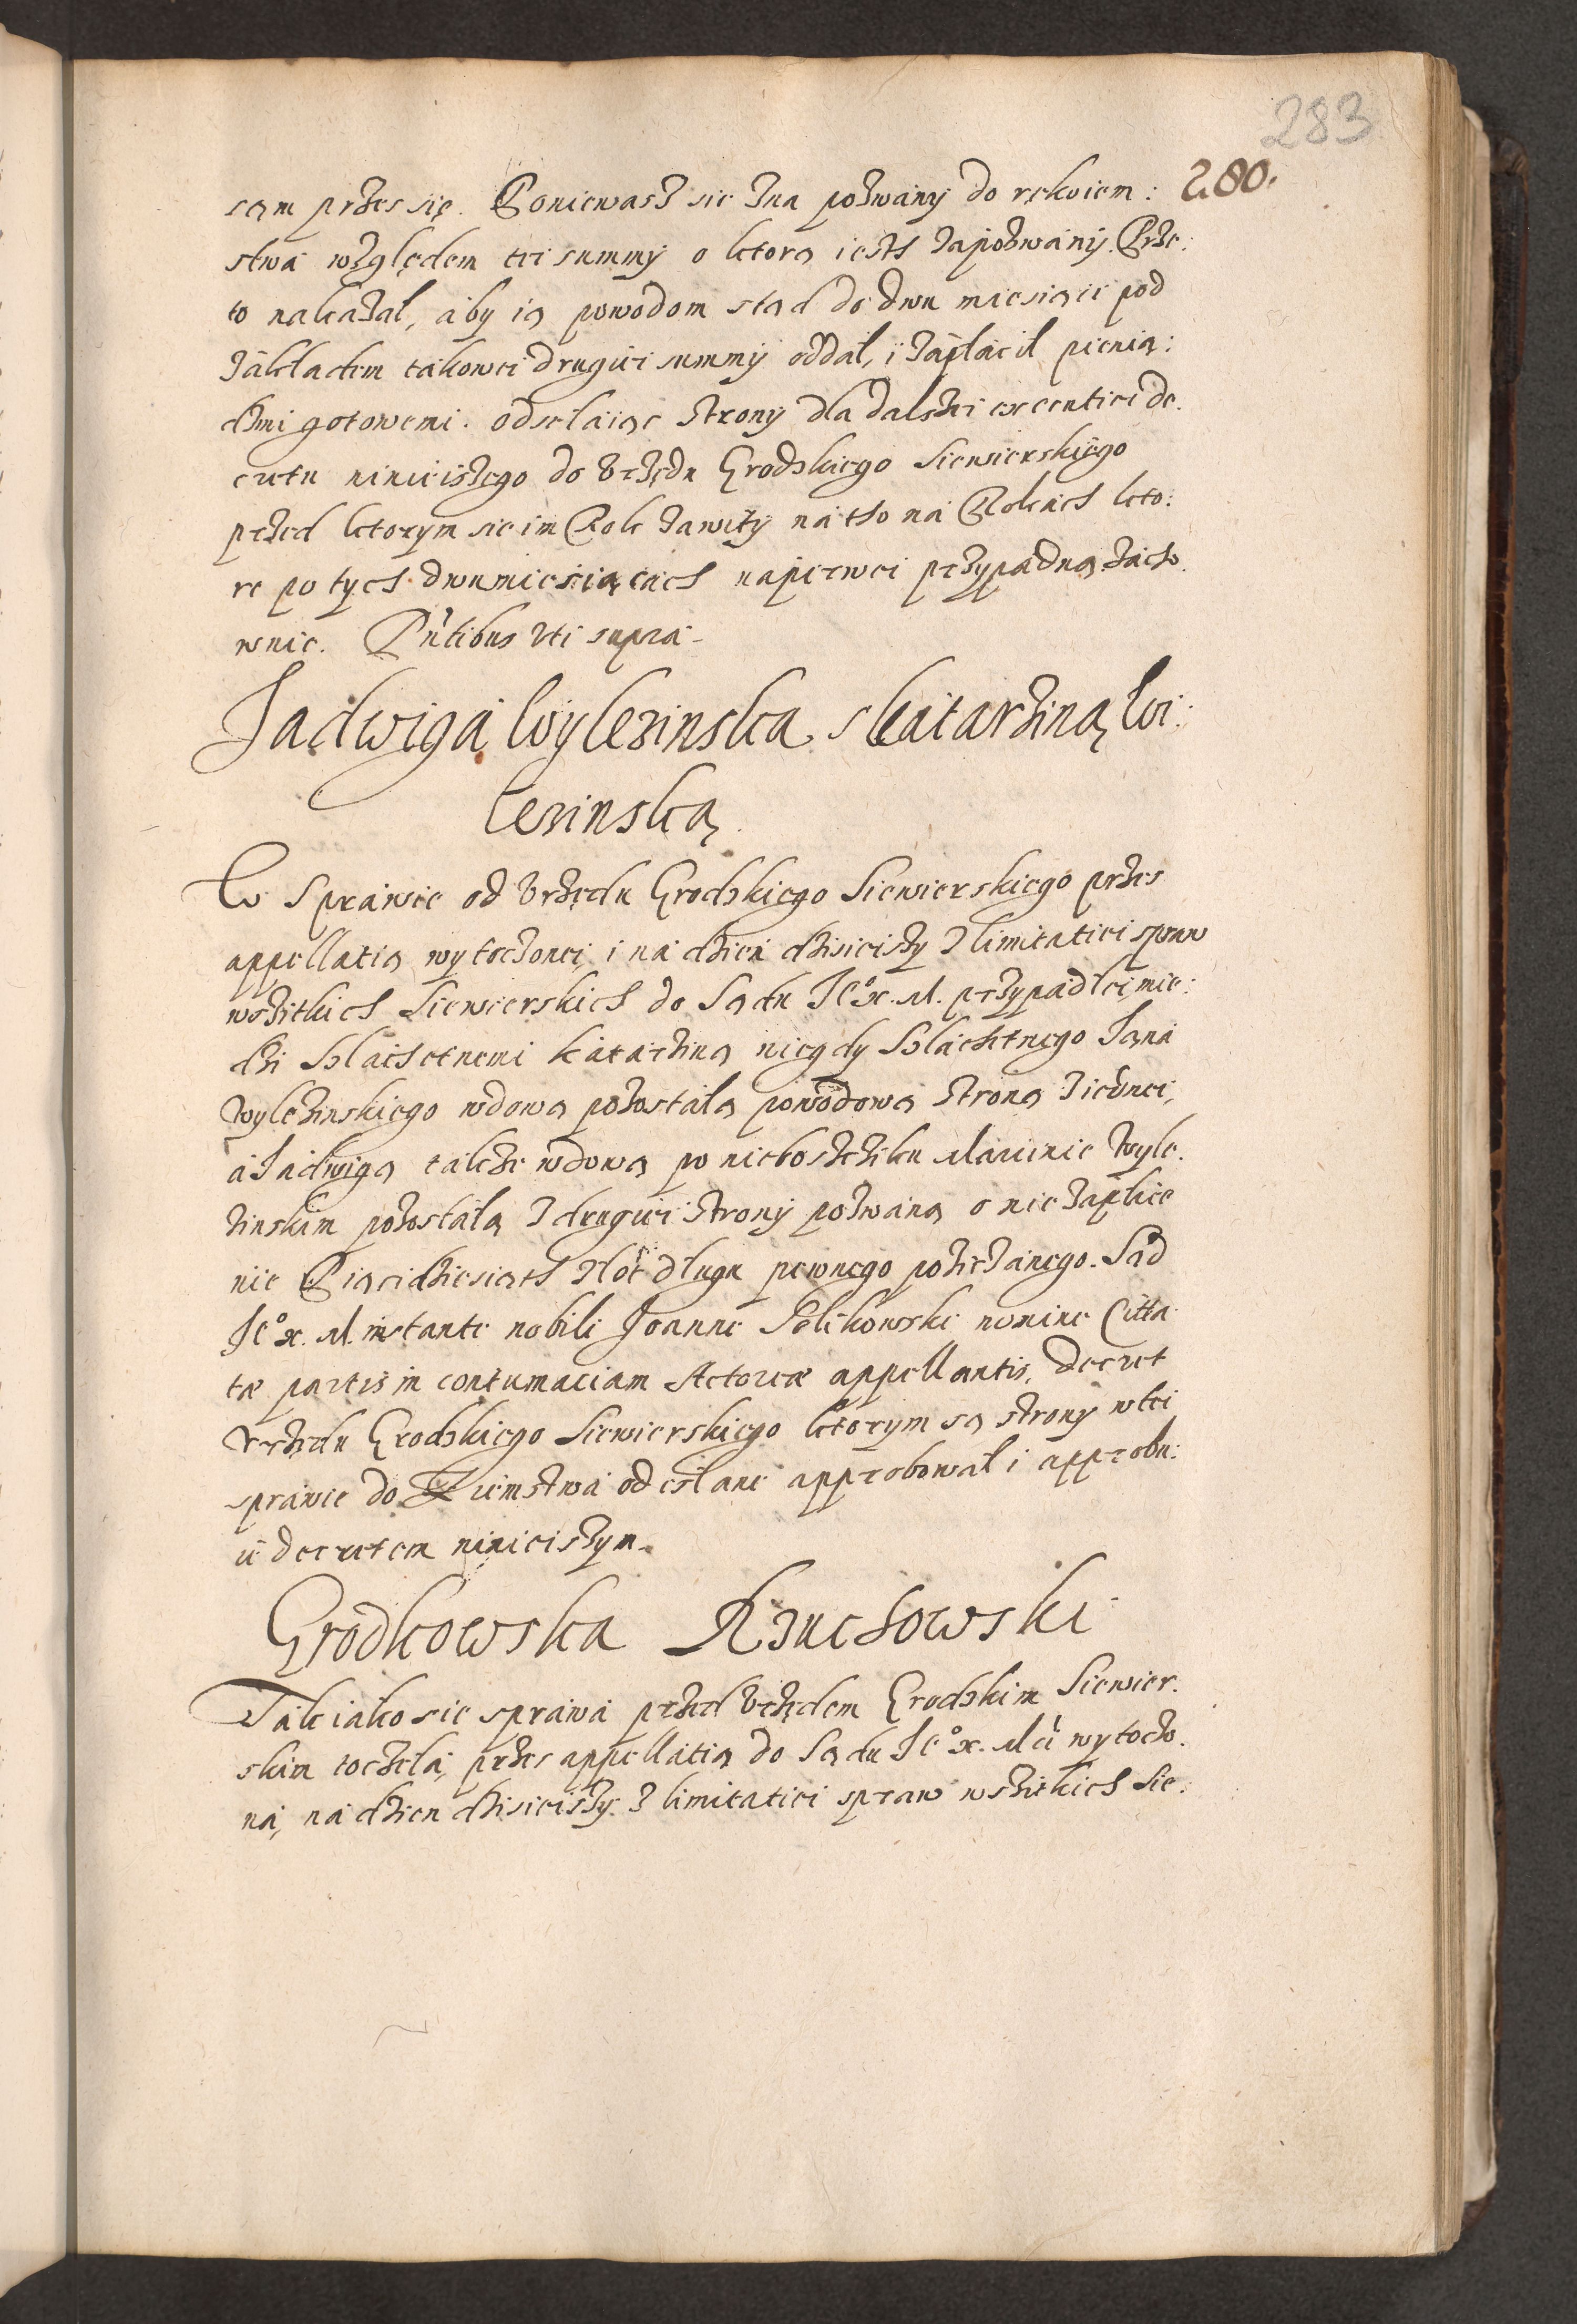 283
280.
sąm przes się. Poniewasz sie zna pozwány do rękoiem:
stwá względem tei summy o ktorą iesth zapozwány. Prze:
to nakazał, áby ią powodom stąd do dwu miesięci pod
zakładem takowei drugiei summy oddał, i zapłacił pienią:
dzmi gotowemi. odsełaiąc strony dla dalszei executiei de.
cretu ninieiszego do Vrzędu Grodzkiego Siewierskiego
przed ktorym sie im Rok zawity ná tho ná Rokach kto:
re po tych dwu miesiącach napierwei przypadną zacho.
wuie. Pntibus vti supra
Jadwigá Wylezinska s katarziną Wi:
lezinską
W Spráwie od Vrzędu Grodzkiego Siewierskiego przes
appellatią wytoczonei, i ná dzień dzisieiszy z limitatiei spraw
wszitkich Siewierskich do Sądu Jeº x. M. przypadłei, mie:
dzi Szlachetnemi kátarziną niegdy Szláchetnego Jana
Wylezinskiego wdową pozostałą powodową stroną z iednei,
á Jadwigą takze wdową po nieboszcziku Marcinie Wyle.
zinskim pozostałą z drugiei strony pozwáną o nie zapłáce
nie Piącidziesiąth złoć długu pewnego pozicżanego. Sąd
Jeº x. M. instante nobili Joanne Pelikowski nomine Citta
tæ partis in contumaciam Actoreæ appellantis, decret
Vrzędu Grodzkiego Siewierskiego ktorym są strony w tei
sprawie do Ziemstwá odesłane approbował i approbu:
ie decretem ninieiszym.
Grodkowska Rzuchowski
Ták iáko sie sprawá przed Vrzędem Grodzkim Siewier.
skim toczełá, przes appellatią do Sądu Jeº x. Mći wytoczo.
ná, ná dzien dzisieiszy z limitatiei spraw wszitkich Sie: